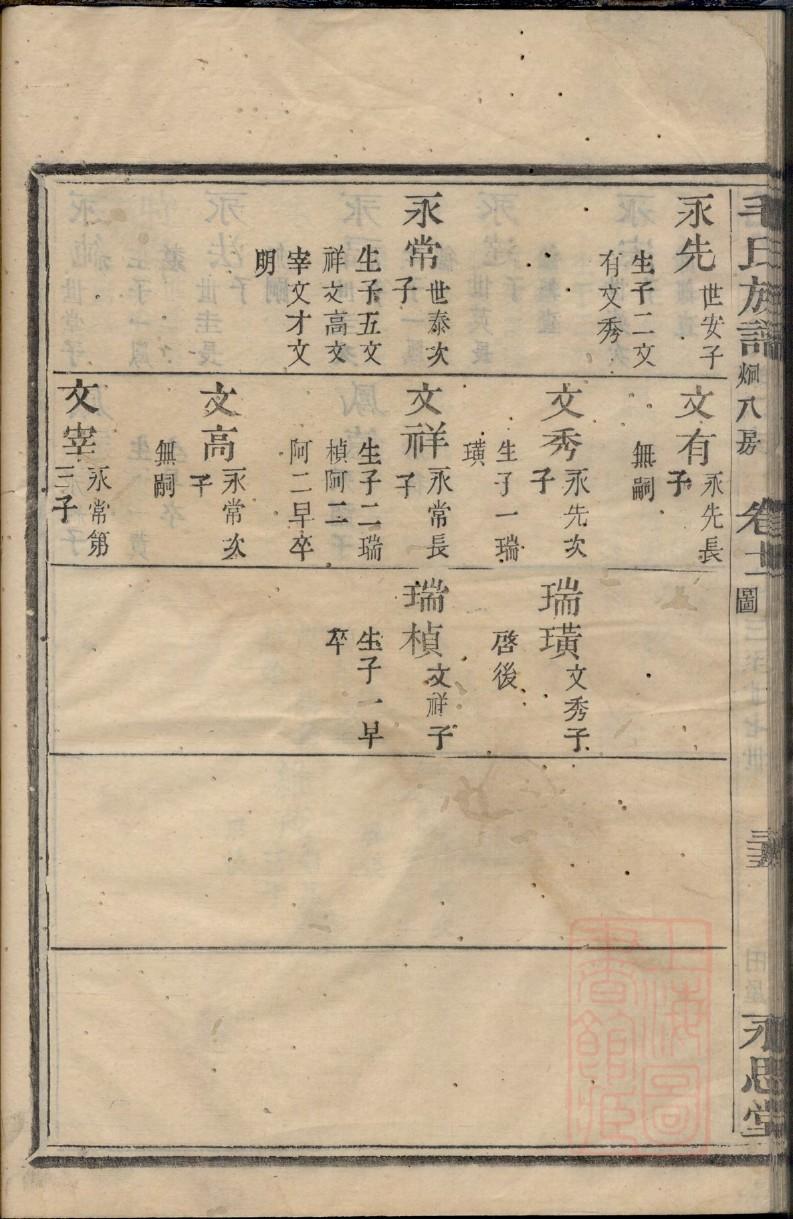 毛氏族譜
烱八房
圖
永思堂
永先
世安子
生子二文
有文秀
永常
世泰次
子
生子五文
祥文高文
宰文才文
明
文有
永先長
子
無嗣
文秀
永先次
子
生子一瑞
璜
文祥
永常長
子
生子二瑞
楨阿二
阿二早卒
文高
永常次
子
無嗣
文宰
永常第
三子
瑞璜
文秀子
啓後
瑞楨
文祥子
生子一早
卒
上海圖書館藏